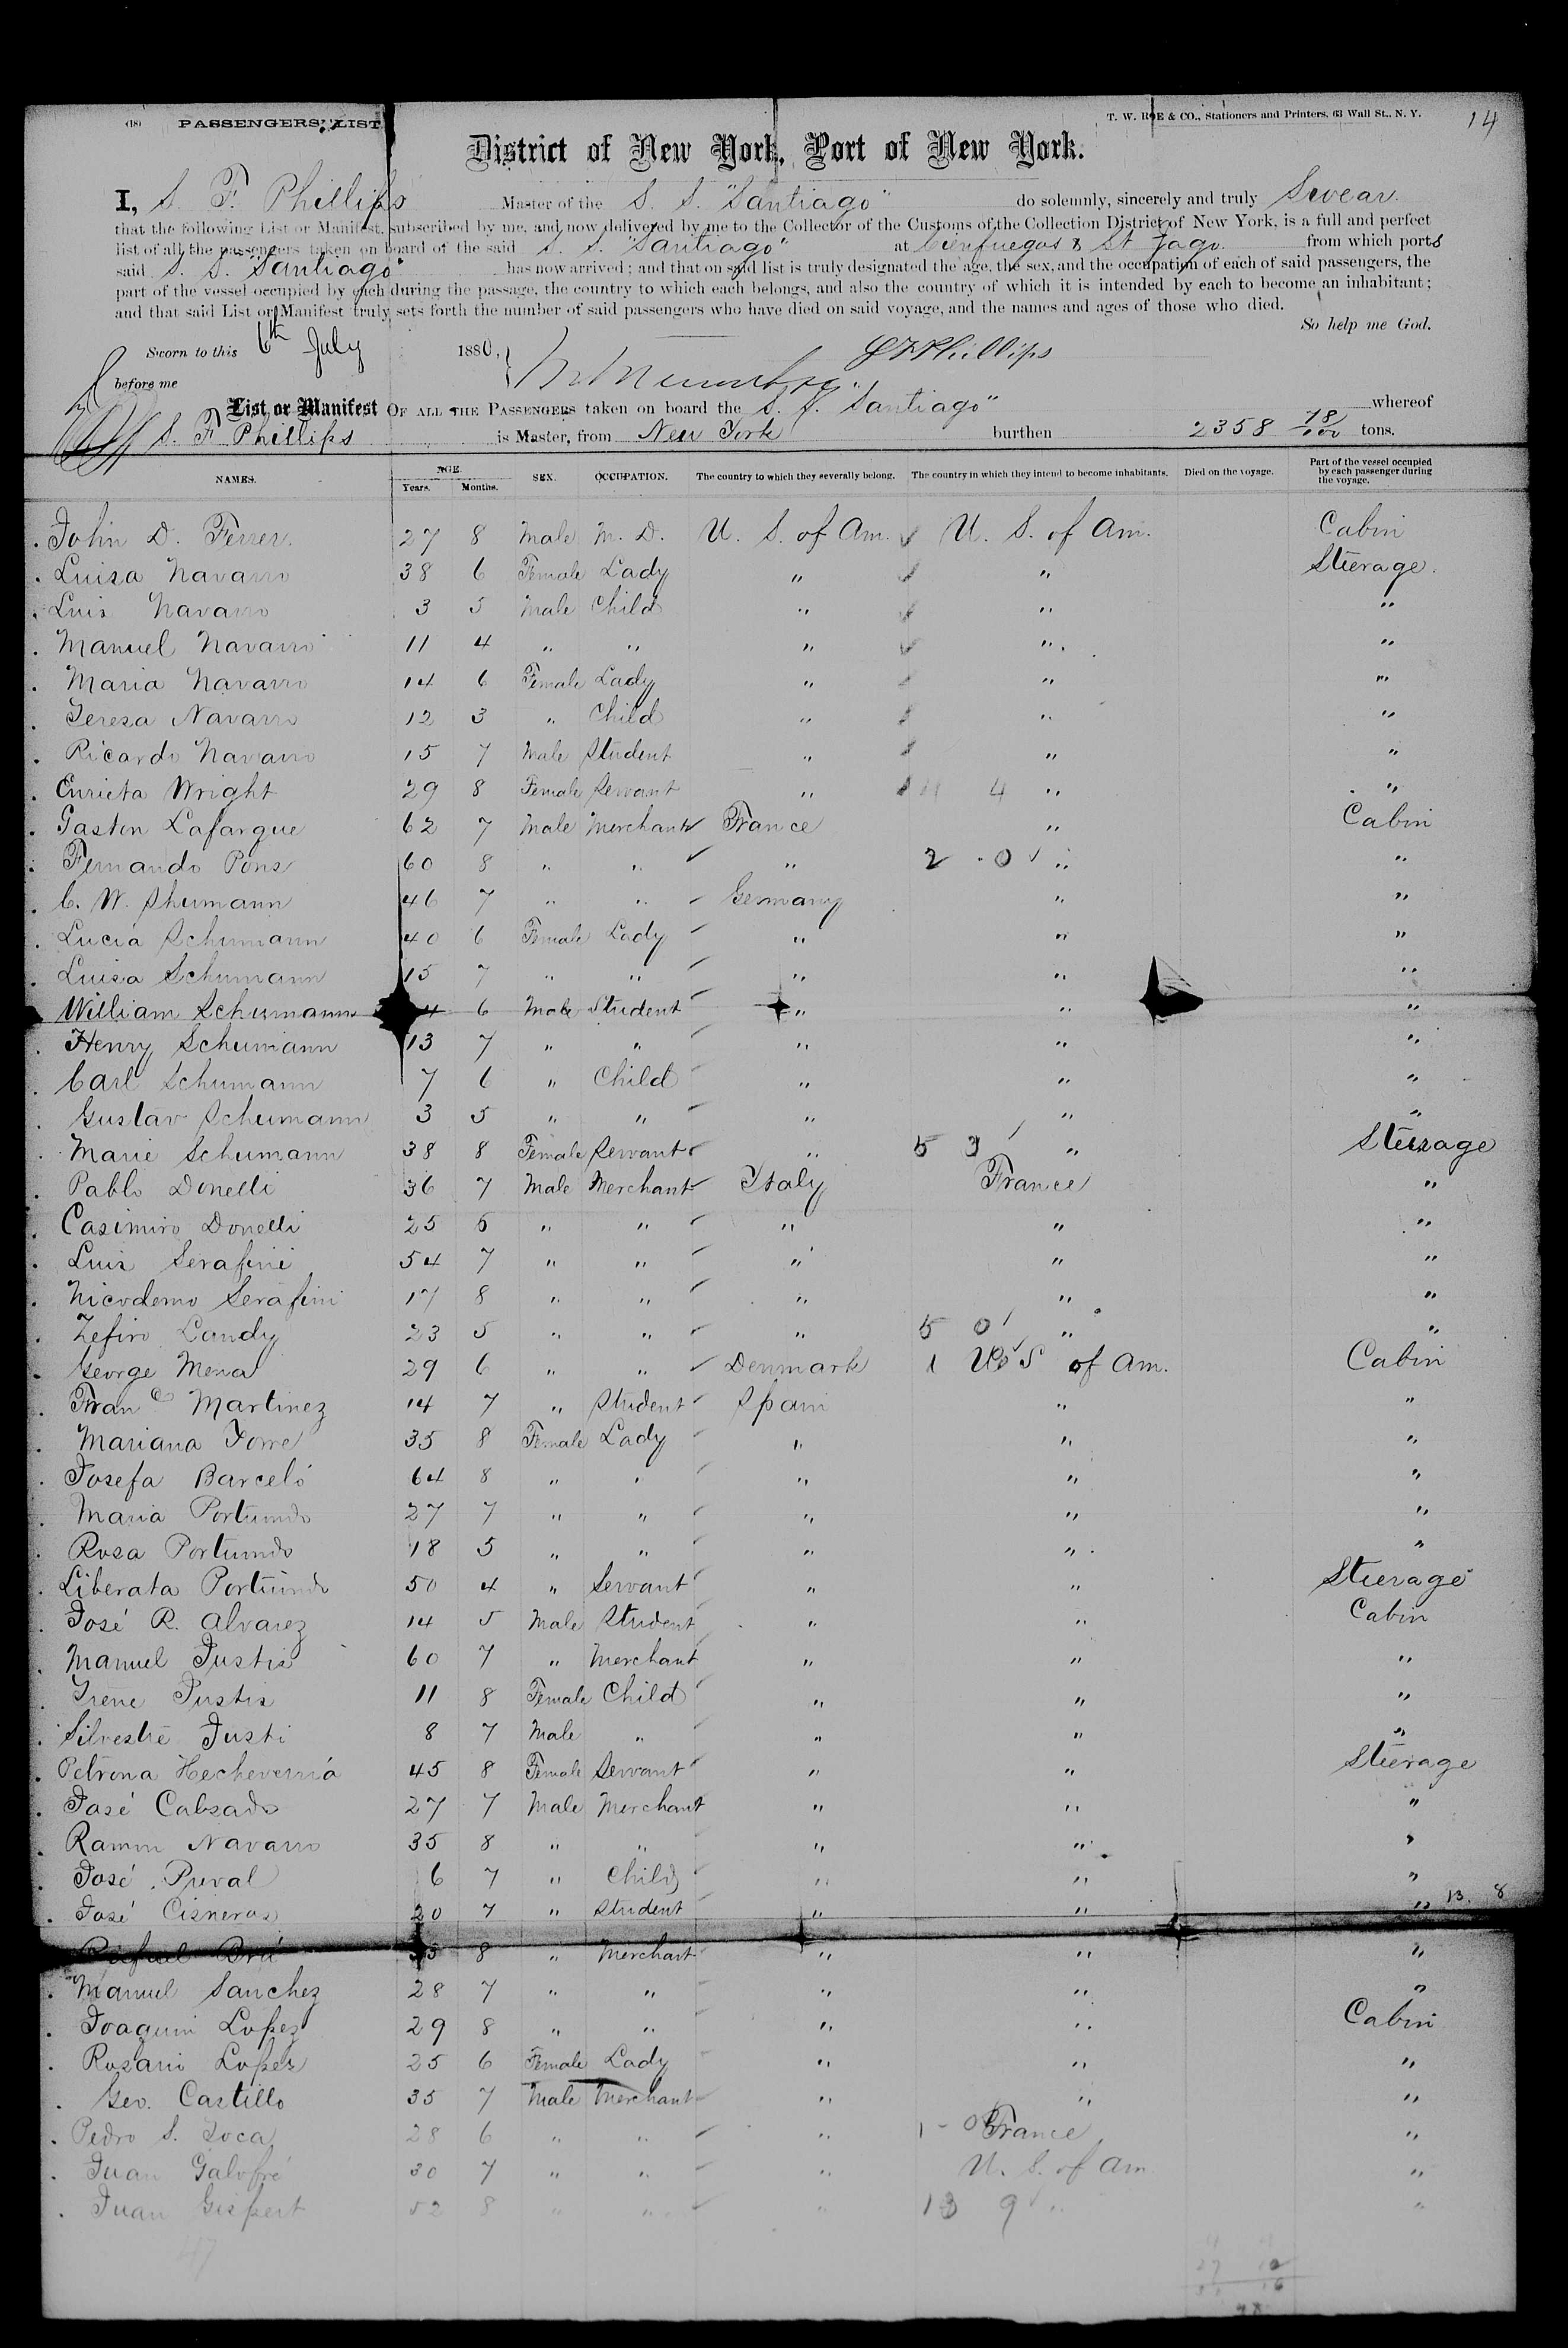 (18) PASSENGERS' LIST. T. W. ROE & CO., Stationers and Printers, 63 Wall St., N. Y. 14
District of New York, Port of New York.
I, S. F. Phillips Master of the S. S. "Santiago" do solemnly, sincerely and truly Swear
that the following List or Manifest, subscribed by me, and now delivered by me to the Collector of the Customs of the Collection District of New York, is a full and perfect
list of all the passengers taken on board of the said S. S. "Santiago" at Cienfuegos & St Jago from which ports
said S. S. "Santiago" has now arrived; and that on said list is truly designated the age, the sex, and the occupation of each of said passengers, the
part of the vessel occupied by each during the passage, the country to which each belongs, and also the country of which it is intended by each to become an inhabitant;
and that said List or Manifest truly sets forth the number of said passengers who have died on said voyage, and the names and ages of those who died.
So help me God.
Sworn to this 6th July 1880, S F Phillips
before me
List or Manifest OF ALL THE PASSENGERS taken on board the S. S. "Santiago" whereof
S. F. Phillips is Master, from New York burthen 2358 78/100 tons.
NAMES. AGE. Years. Months. SEX. OCCUPATION. The country to which they severally belong. The country in which they intend to become inhabitants. Died on the voyage. Part of the vessel occupied by each passenger during the voyage.
John D. Ferrer. 27 8 Male M. D. U. S. of Am. U. S. of Am. Cabin
Luisa Navarro 38 6 Female Lady " " Steerage.
Luis Navarro 3 5 Male Child " " "
Manuel Navarro 11 4 " " " " "
Maria Navarro 14 6 Female Lady " " "
Teresa Navarro 12 3 " Child " " "
Ricardo Navarro 15 7 Male Student " " "
Enrieta Wright 29 8 Female Servant " 4 " "
Gaston Lafargue 62 7 Male Merchant France " Cabin
Fernando Pons 60 8 " " " 2 0 " "
C. W. Shumann 46 7 " " Germany " "
Lucia Schumann 40 6 Female Lady " " "
Luisa Schumann 15 7 " " " " "
William Schumann 4 6 Male Student " " "
Henry Schumann 13 7 " " " " "
Carl Schumann 7 6 " Child " " "
Gustav Schumann 3 5 " " " " "
Marie Schumann 38 8 Female Servant " 5 3 " Steerage
Pablo Donelli 36 7 Male Merchant Italy France "
Casimiro Donelli 25 5 " " " " "
Luis Serafini 54 7 " " " " "
Nicodemo Serafini 17 8 " " " " "
Zefiro Landy 23 5 " " " 5 0 " "
George Mena 29 6 " " Denmark 1 U. S of Am. Cabin
Franco Martinez 14 7 " Student Spain " "
Mariana Torre 35 8 Female Lady " " "
Josefa Barceló 64 8 " " " " "
Maria Portuondo 27 7 " " " " "
Rosa Portuondo 18 5 " " " " "
Liberata Portuondo 50 4 " Servant " " Steerage
José R. Alvarez 14 5 Male Student " " Cabin
Manuel Justis 60 7 " Merchant " " "
Irene Justis 11 8 Female Child " " "
Silvestre Justi 8 7 Male " " " "
Petrona Hecheverria 45 8 Female Servant " " Steerage
José Calsado 27 7 Male Merchant " " "
Ramon Navarro 35 8 " " " " "
José Puval 6 7 " Child " " "
José Cisneros 20 7 " Student " " " 13. 8
Rafael Brú 8 " Merchant " " "
Manuel Sanchez 28 7 " " " " "
Joaquin Lopez 29 8 " " " " Cabin
Rosario Lopez 25 6 Female Lady " " "
Geo. Castillo 35 7 Male Merchant " " "
Pedro S. Toca 28 6 " " " 1 - 0 France "
Juan Galofré 30 7 " " " U. S. of Am "
Juan Gispert 52 8 " " " 13 9 " "
47